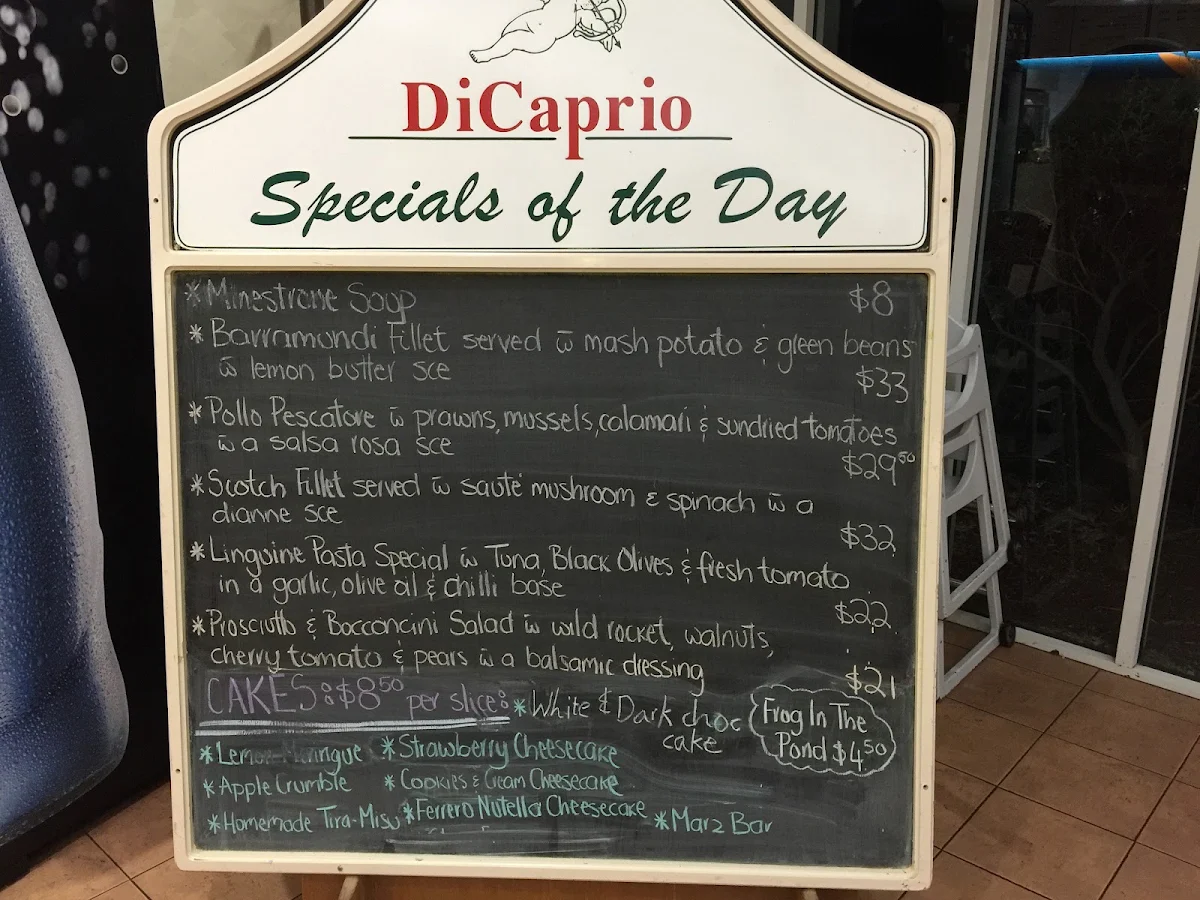 DiCaprio
Specials of the Day
*Minestrone Soup $8
*Barramundi Fillet served w̄ mash potato & green beans
w̄ lemon butter sce $33
*Pollo Pescatore w̄ prawns, mussels, calamari & sundried tomatoes
w̄ a salsa rosa sce $29⁵⁰
*Scotch Fillet served w̄ sauté mushroom & spinach w̄ a
dianne sce $32
*Linguine Pasta Special w̄ Tuna, Black Olives & fresh tomato
in a garlic, olive oil & chilli base $22
*Prosciutto & Bocconcini Salad w̄ wild rocket, walnuts,
cherry tomato & pears w̄ a balsamic dressing $21
CAKES: $8⁵⁰ per slice: *White & Dark choc
cake
Frog In The
Pond $4⁵⁰
*Lemon Meringue *Strawberry Cheesecake
*Apple Crumble *Cookies & Cream Cheesecake
*Homemade Tira-Misu *Ferrero Nutella Cheesecake *Marz Bar